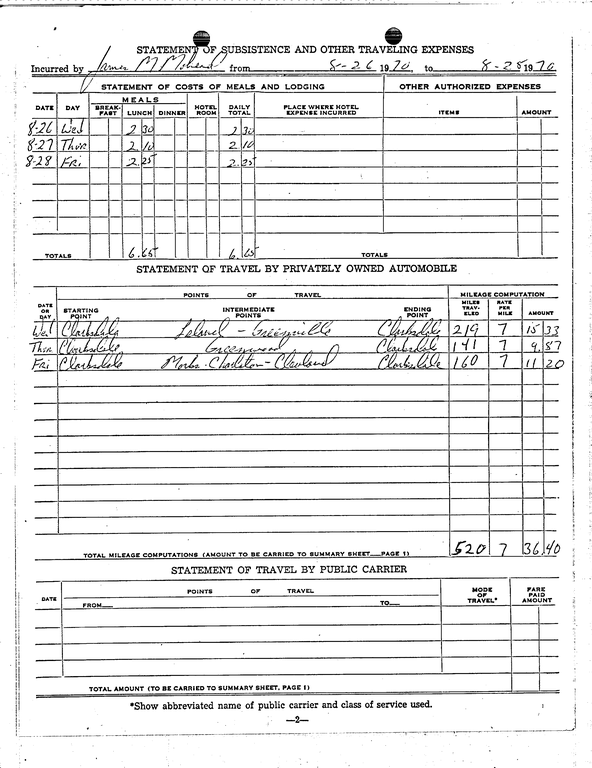 STATEMENT OF SUBSISTENCE AND OTHER TRAVELING EXPENSES
Incurred by James M from 8-26 1970 to 8-28 1970
STATEMENT OF COSTS OF MEALS AND LODGING OTHER AUTHORIZED EXPENSES
DATE DAY MEALS BREAKFAST LUNCH DINNER HOTEL ROOM DAILY TOTAL PLACE WHERE HOTEL EXPENSE INCURRED ITEMS AMOUNT
8-26 Wed 2 30 2 30
8-27 Thur 2 10 2 10
8-28 Fri 2.25 2.25
TOTALS 6.65 6.65 TOTALS
STATEMENT OF TRAVEL BY PRIVATELY OWNED AUTOMOBILE
POINTS OF TRAVEL MILEAGE COMPUTATION
DATE OR DAY STARTING POINT INTERMEDIATE POINTS ENDING POINT MILES TRAVELED RATE PER MILE AMOUNT
Wed Clarksdale Leland - Greenville Clarksdale 219 7 15 33
Thur Clarksdale Greenwood Clarksdale 141 7 9.87
Fri Clarksdale Marks - Charleston - Cleveland Clarksdale 160 7 11 20
TOTAL MILEAGE COMPUTATIONS (AMOUNT TO BE CARRIED TO SUMMARY SHEET—PAGE 1) 520 7 36.40
STATEMENT OF TRAVEL BY PUBLIC CARRIER
DATE POINTS OF TRAVEL MODE OF TRAVEL* FARE PAID AMOUNT
FROM— TO—
TOTAL AMOUNT (TO BE CARRIED TO SUMMARY SHEET, PAGE 1)
*Show abbreviated name of public carrier and class of service used.
—2—